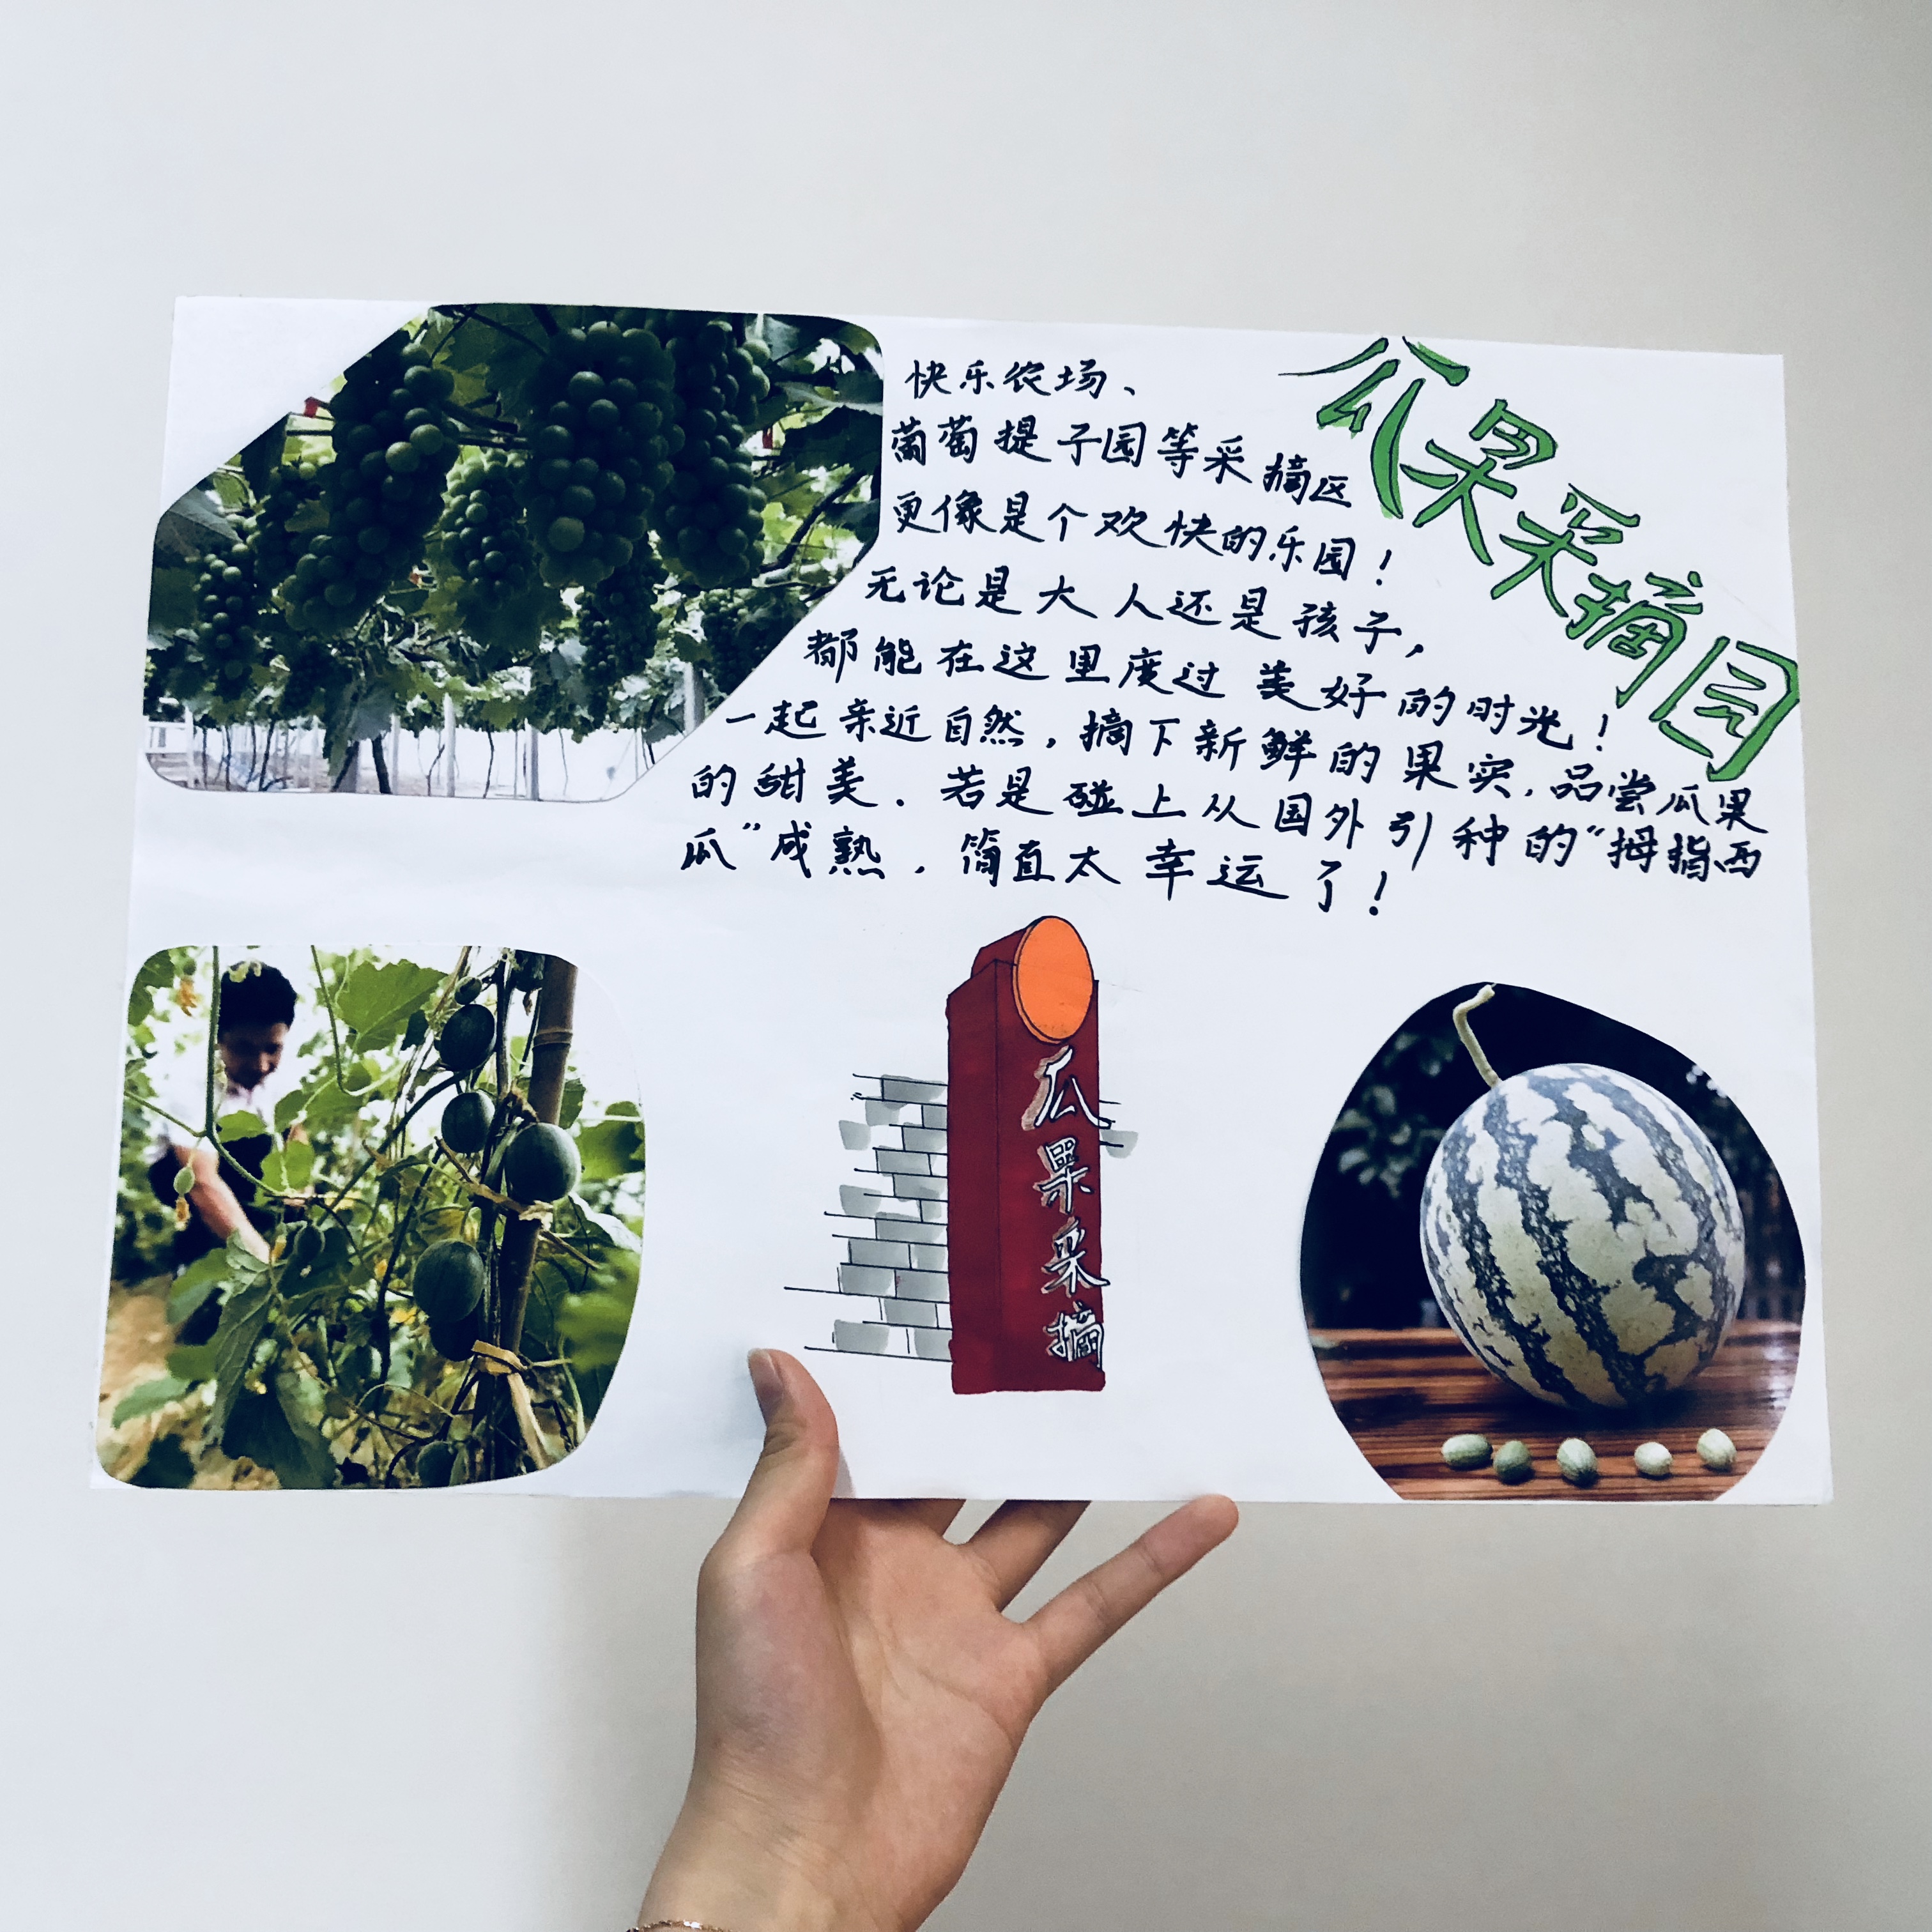 瓜果采摘园
快乐农场、
葡萄提子园等采摘区
更像是个欢快的乐园！
无论是大人还是孩子，
都能在这里度过美好的时光！
一起亲近自然，摘下新鲜的果实，品尝瓜果
的甜美．若是碰上从国外引种的“拇指西
瓜”成熟，简直太幸运了！
瓜果采摘